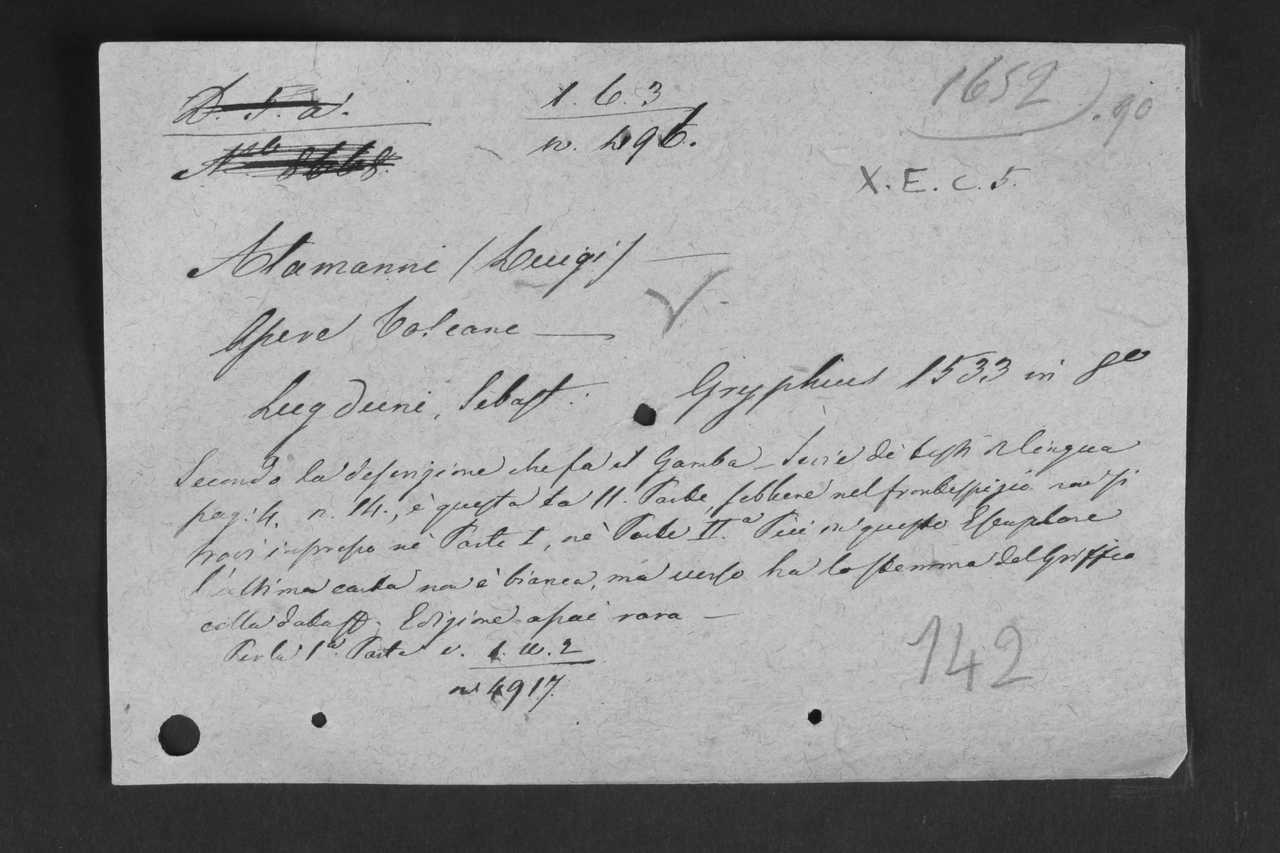 D. 5. a.
1. 6. 3
1652 ) . 90
No 8668.
n. 496.
X. E. C. 5.
Alamanni (Luigi) —
Opere Toscane —
Lugduni, Sebast. Gryphius 1533 in 8o
Secondo la descrizione che fa il Gamba — Serie dè testi di lingua
pag: 4. n. 14., è questa la II. Parte, sebbene nel frontespizio non si
trovi impresso nè Parte I, nè Parte II.a Più in questo Esemplare
l'ultima carta non è bianca, ma verso ha lo stemma del Griffio
colla data. Edizione assai rara —
Per la 1a. Parte v. 1. u. 2
no 4917.
142